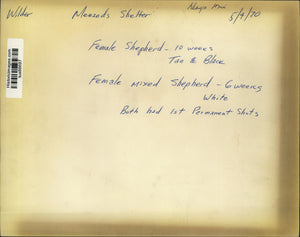 Wilder Menands Shelter 5/9/70
Female Shepherd - 10 weeks
Tan & Black
Female mixed Shepherd - 6 weeks
White
Both had 1st Permanent Shots